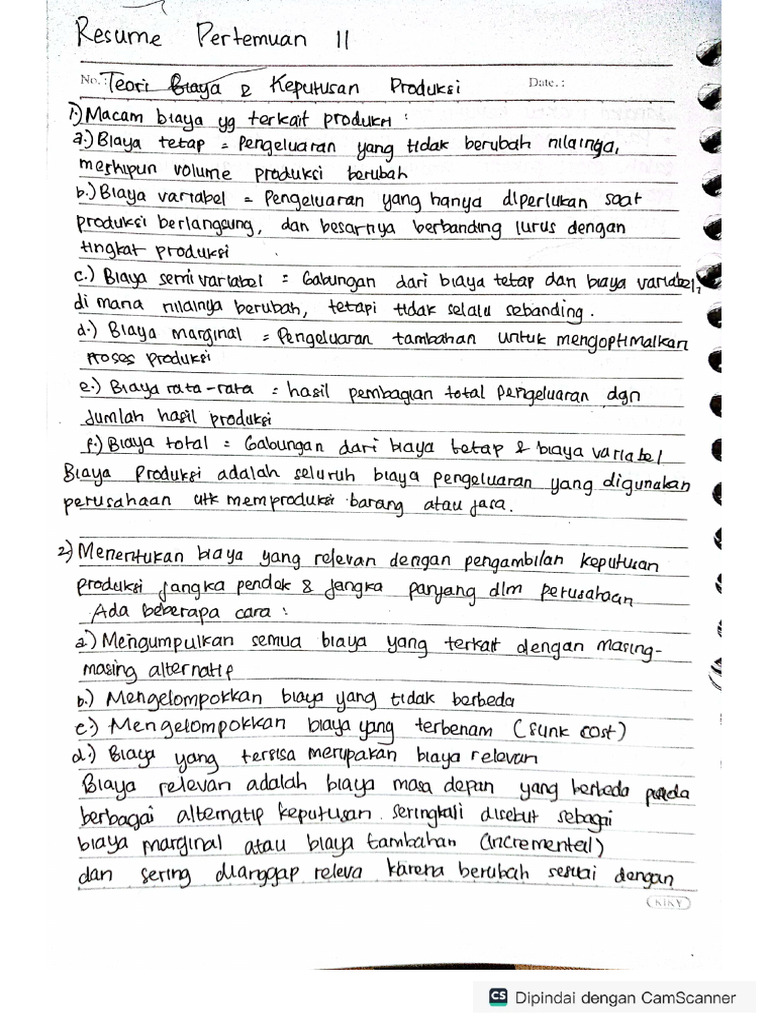 Resume Pertemuan 11
No.: Teori Biaya & Keputusan Produksi Date.:
1.) Macam biaya yg terkait produksi :
a.) Biaya tetap = Pengeluaran yang tidak berubah nilainya,
meskipun volume produksi berubah
b.) Biaya variabel = Pengeluaran yang hanya diperlukan saat
produksi berlangsung, dan besarnya berbanding lurus dengan
tingkat produksi
c.) Biaya semi variabel = Gabungan dari biaya tetap dan biaya variabel,
di mana nilainya berubah, tetapi tidak selalu sebanding.
d.) Biaya marginal = Pengeluaran tambahan untuk mengoptimalkan
proses produksi
e.) Biaya rata-rata = hasil pembagian total pengeluaran dgn
Jumlah hasil produksi
f.) Biaya total = Gabungan dari biaya tetap & biaya variabel
Biaya Produksi adalah seluruh biaya pengeluaran yang digunakan
perusahaan utk memproduksi barang atau jasa.
2.) Menentukan biaya yang relevan dengan pengambilan keputusan
produksi jangka pendek & jangka panjang dlm perusahaan
Ada beberapa cara :
a.) Mengumpulkan semua biaya yang terkait dengan masing-
masing alternatif
b.) Mengelompokkan biaya yang tidak berbeda
c.) Mengelompokkan biaya yang terbenam (sunk cost)
d.) Biaya yang tersisa merupakan biaya relevan
Biaya relevan adalah biaya masa depan yang berbeda pada
berbagai alternatif keputusan. seringkali disebut sebagai
biaya marginal atau biaya tambahan (incremental)
dan sering dianggap releva karena berubah sesuai dengan
KIKY
CS Dipindai dengan CamScanner